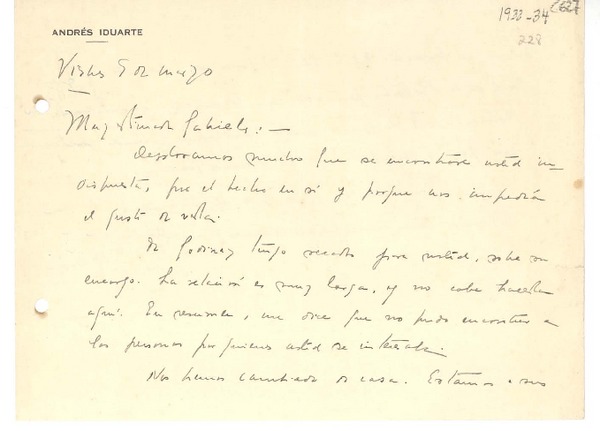 1933-34
627
228
ANDRÉS IDUARTE
Viernes 5 de mayo
Muy estimada Gabriela:—
Deploramos mucho que se encontrara usted in-
dispuesta, por el hecho en sí y porque nos impedirá
el gusto de verla.
De Godínez tengo recado para usted, sobre su
encargo. La relación es muy larga, y no cabe hacerla
aquí. En resumen, me dice que no pudo encontrar a
las personas por quienes usted se interesaba.
Nos hemos cambiado de casa. Estamos a sus